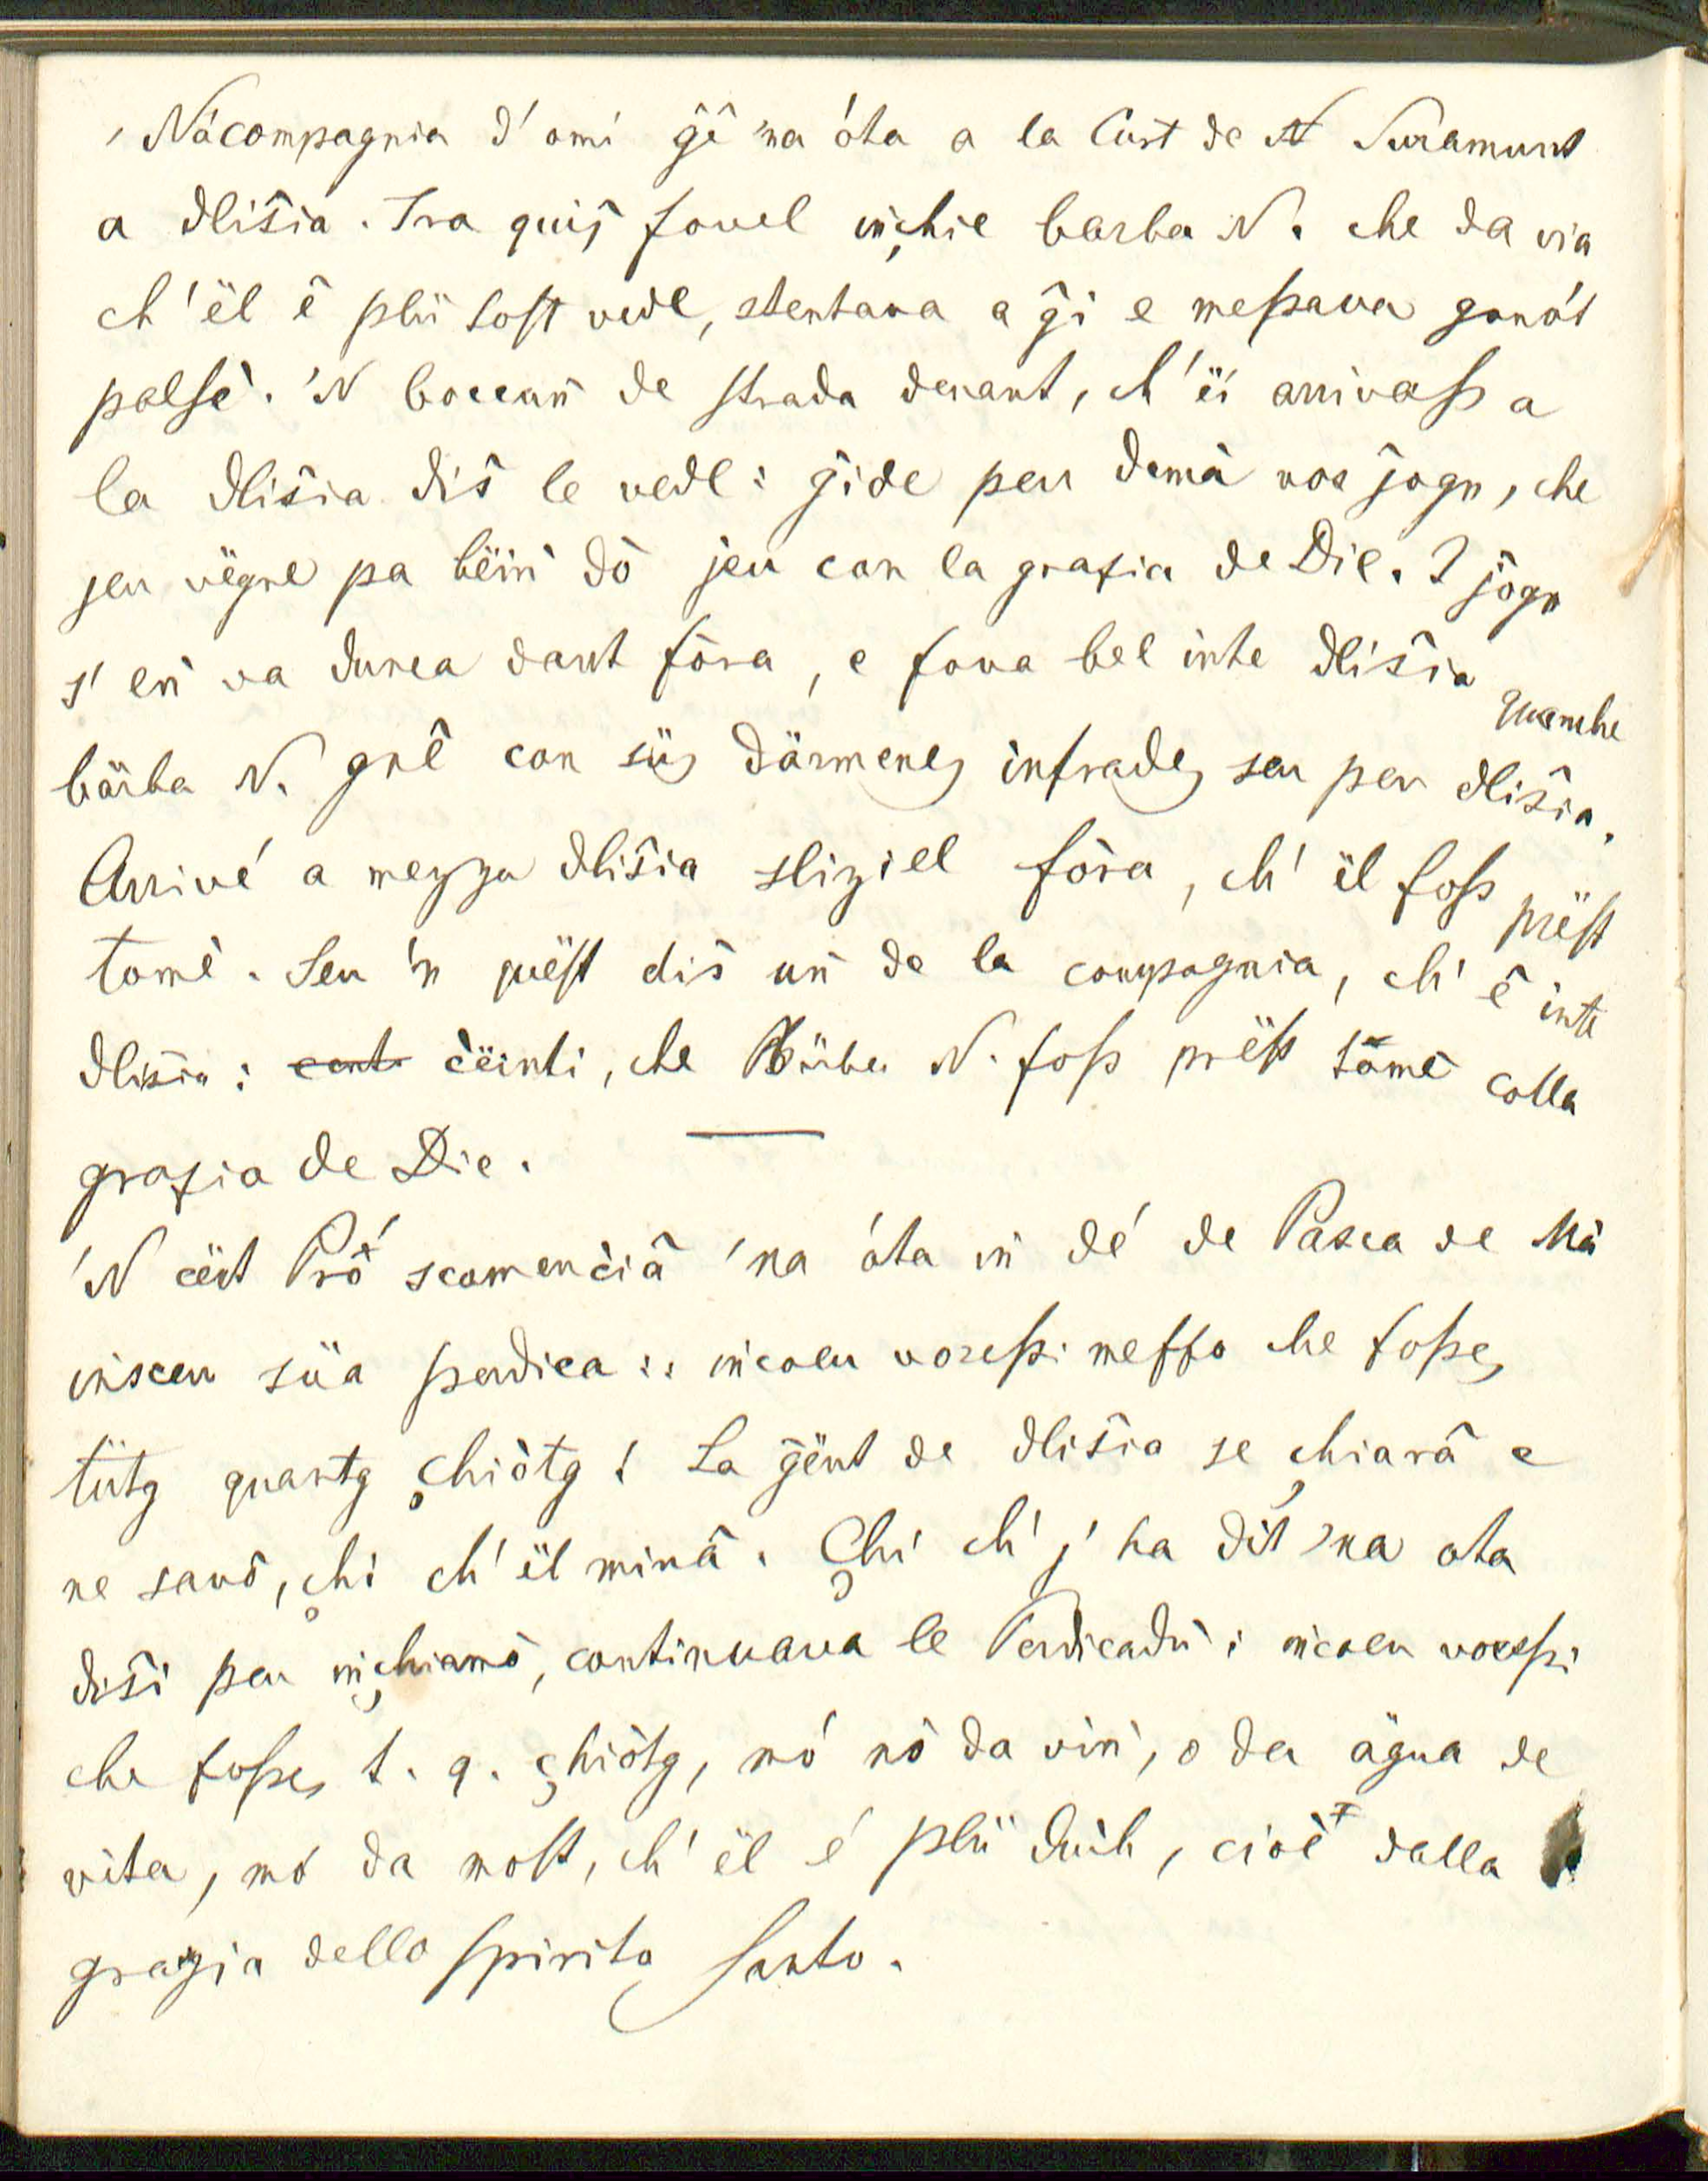 'Na compagnia d'omi gê 'na óta a la Curt de N Suramunt
a dlisia. Tra quiſ fovel inchie barba N. che da via
ch'ël ê plü toſt vedl, stentava a gî e meſsava gonót
palſè. 'N boccun de ſtrada denant, ch'ëi arrivaſs a
la dlisia dis le vedl: gide peu demà vos jogn, che
jeu vëgne pa bëin dò jeu con la grazia de Die. I jögn
s'en va dunca dant fòra, e fova bel inte dlisia quanche
bärba N. gnê con süs därmenes infrades seu per dlisia.
Arrivé a mezza dlisia sliziel fòra, ch'ël foſs prëſt
tomè. Seu 'n quëſt dis un de la compagnia, ch'ê inte
dlisia: cënti, che Bärba N. foſs prëſt tomè colla
grazia de Die.
'N cërt Prô scomenciâ 'na óta in dé de Pasca de Mà
insceu süa perdica:: incoeu voreſsi meſſo che foſses
tütg quantg chiòtg! La gënt de dlisia se chiarâ e
ne savô, chi ch'ël minâ. Chi ch'j'ha dit 'na ota
disi peu inchiamò, continuava le Perdicadù: incoeu voreſsi
che foſses t. q. chiòtg, mó nò da vin, o da ägua de
vita, mó da moſt, ch'ël é plü duch, cioè dalla
grazia dello ſpirito ſanto.